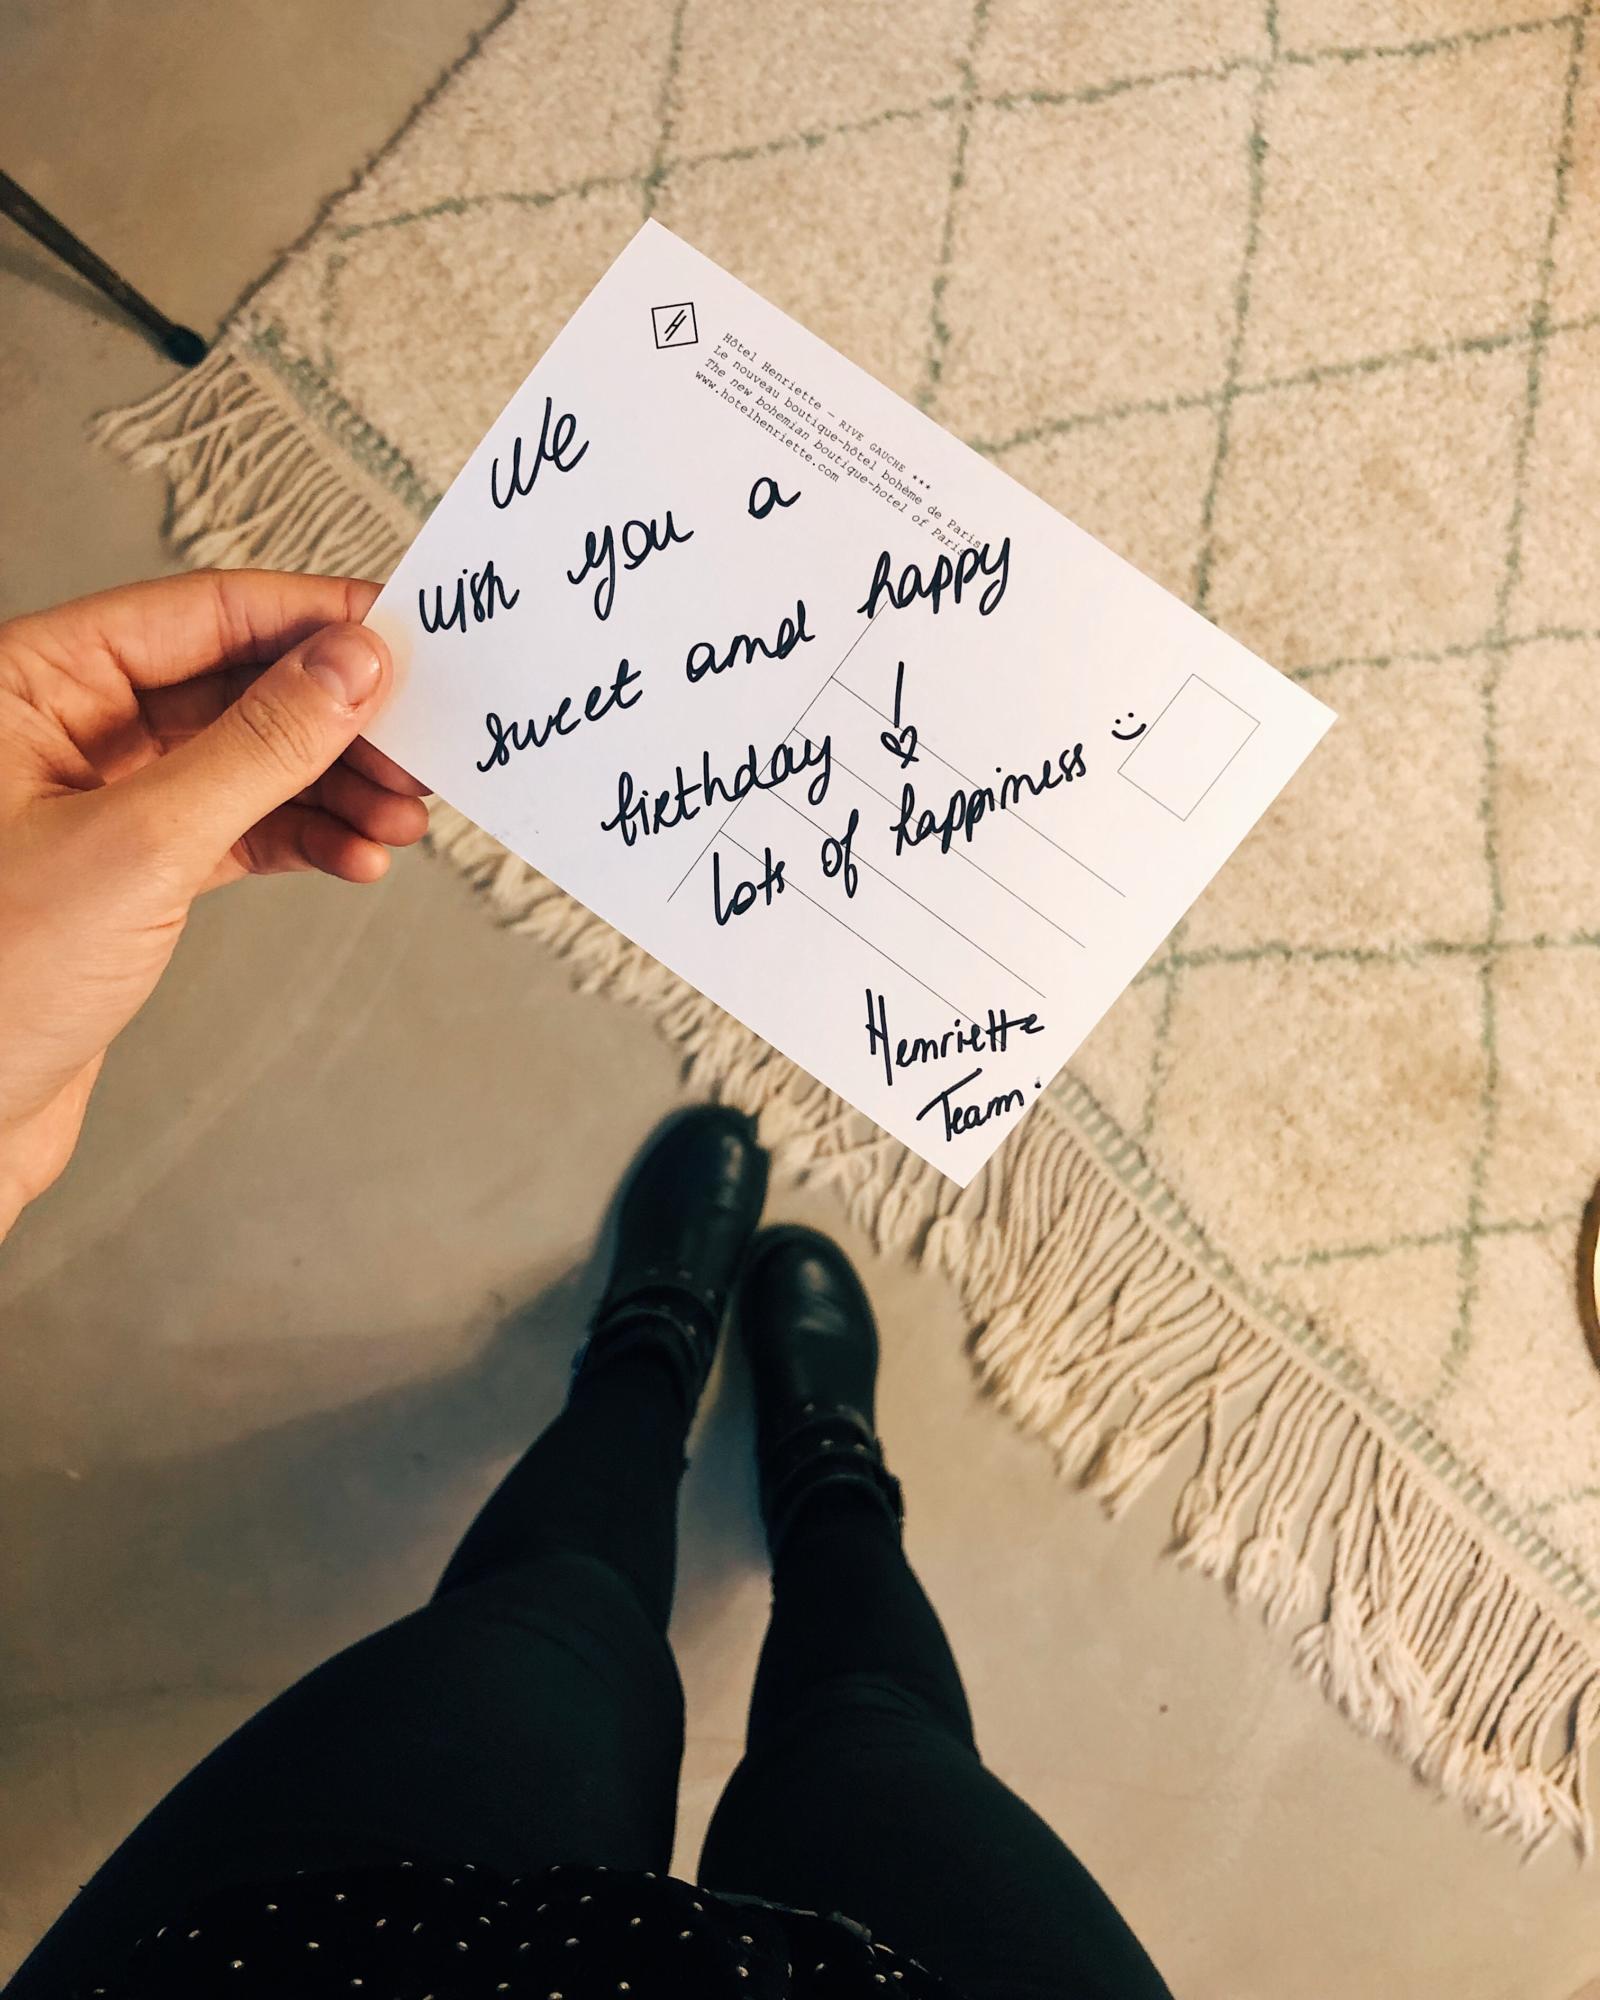 H
Hôtel Henriette — RIVE GAUCHE ***
Le nouveau boutique-hôtel bohème de Paris
The new bohemian boutique-hotel of Paris
www.hotelhenriette.com
We
wish you a
sweet and happy
birthday !
lots of happiness :)
Henriette
Team.